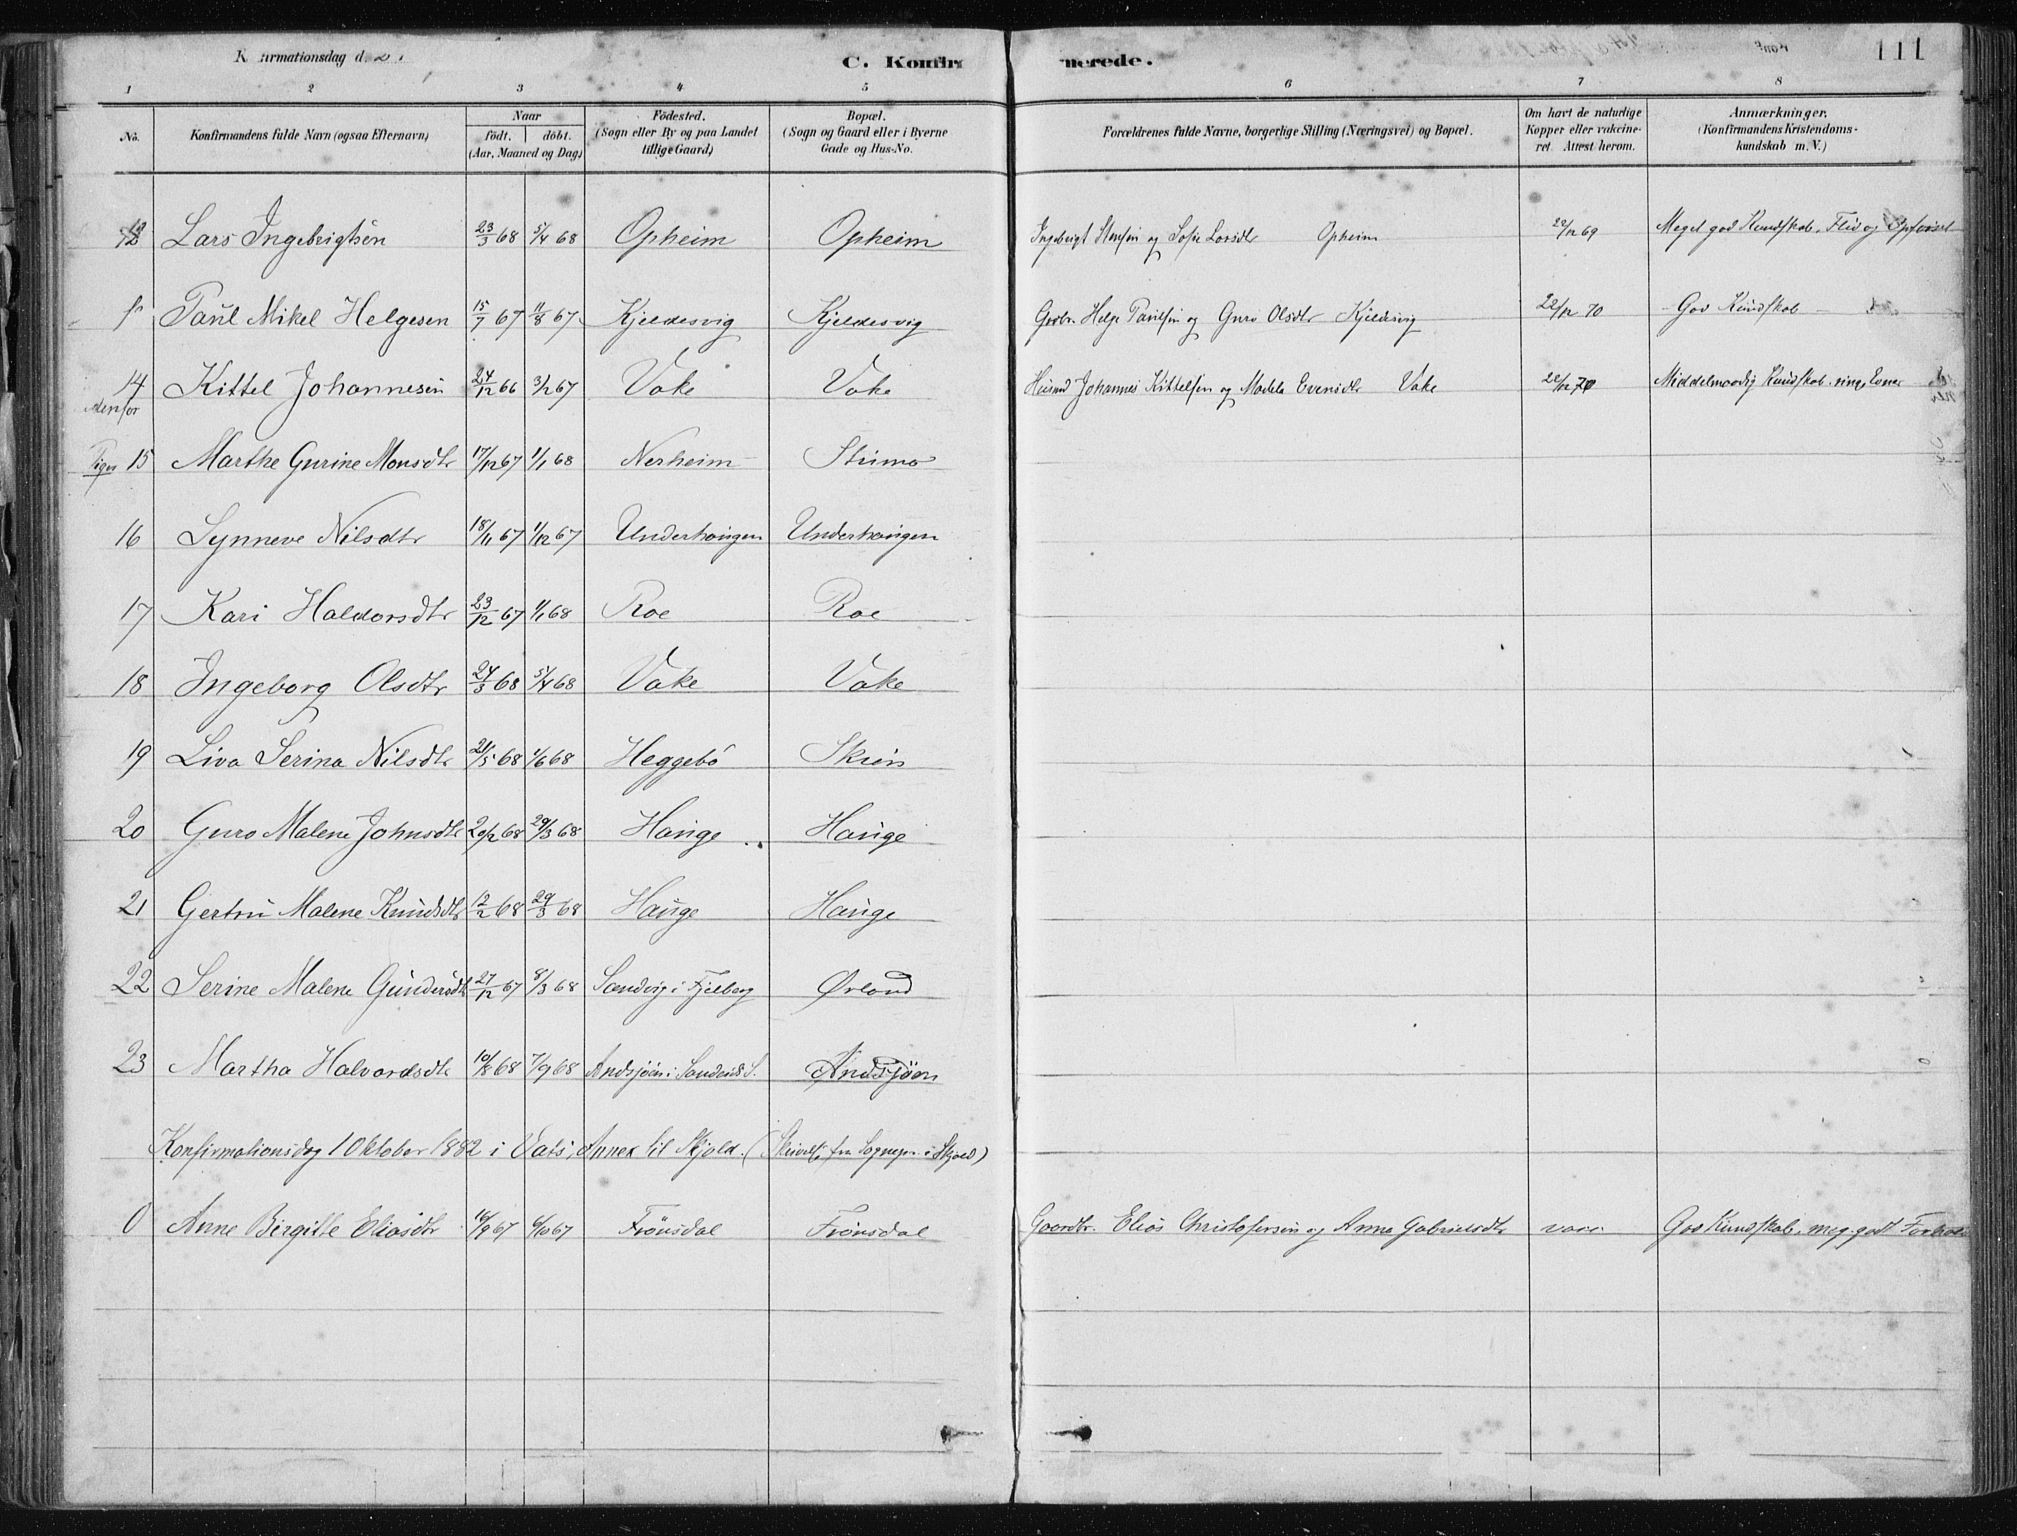 Konfirmationsdag d. C. Konfirmerede. 111
1 2 3 4 5 6 7 8
No. Konfirmandens fulde Navn (ogsaa Efternavn) Naar födt. döbt. (Aar, Maaned og Dag) Födested. (Sogn eller By og paa Landet tillige Gaard) Bopæl. (Sogn og Gaard eller i Byerne Gade og Hus-No. Forældrenes fulde Navne, borgerlige Stilling (Næringsvei) og Bopæl. Om havt de naturlige Kopper eller vakcineret. Attest herom. Anmærkninger. (Konfirmandens Kristendomskundskab m. V.)
12 Lars Ingebrigtsen 23/3 68 5/4 68 Opheim Opheim Ingebrigt Stensen og Sofie Larsdtr Opheim 22/12 69 Meget god Kundskab, Flid og Opførsel
Paul Mikel Helgesen 15/7 67 11/8 67 Kjeldesvig Kjeldesvig Gaabr. Helge Paulsen og Guro Olsdtr Kjeldesvig 22/12 70 God Kundskab
14 Kittel Johannesen 24/12 66 3/2 67 Vake Vake Husmd Johannes Kittelsen og Madela Evensdtr Vake 22/12 70 Middelmaadig Kundskab. ringe Evner
Piger 15 Marthe Gurine Monsdtr 17/12 67 1/1 68 Nerheim Stumo
16 Synneve Nilsdtr 18/11 67 1/12 67 Underhaugen Underhaugen
17 Kari Haldorsdtr 23/12 67 1/1 68 Roe Roe
18 Ingeborg Olsdtr 24/3 68 5/4 68 Vake Vake
19 Liva Serina Nilsdtr 21/5 68 1/6 68 Heggebö Skien
20 Guro Malene Johnsdtr 20/2 68 29/3 68 Hauge Hauge
21 Gertru Malene Knudsdtr 12/2 68 29/3 68 Hauge Hauge
22 Serine Malene Gundersdtr 27/12 67 8/3 68 Sandvig i Fjelberg Ørland
23 Martha Halvardsdtr 10/8 68 7/9 68 Andsjöen i Sandeids S. Andsjöen
Konfirmationsdag 1 Oktober 1882 i Vats, Annex til Skjold. (Skrivelse fra Sognepr. i Skjold)
0 Anne Birgitte Eliasdtr 16/9 67 6/10 67 Frönsdal Frönsdal Gaardbr. Elias Christofersen og Anna Gabrielsdtr vacc. God Kundskab, meg. godt Forhold